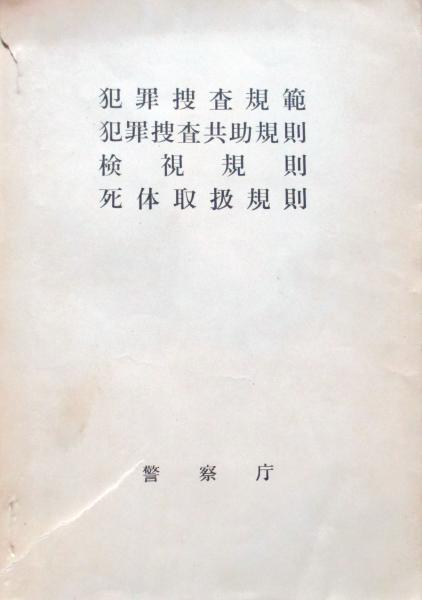 犯罪捜査規範
犯罪捜査共助規則
検視規則
死体取扱規則
警察庁